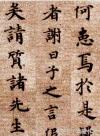 何患焉於是
者謝曰子之言信
矣請質諸先生